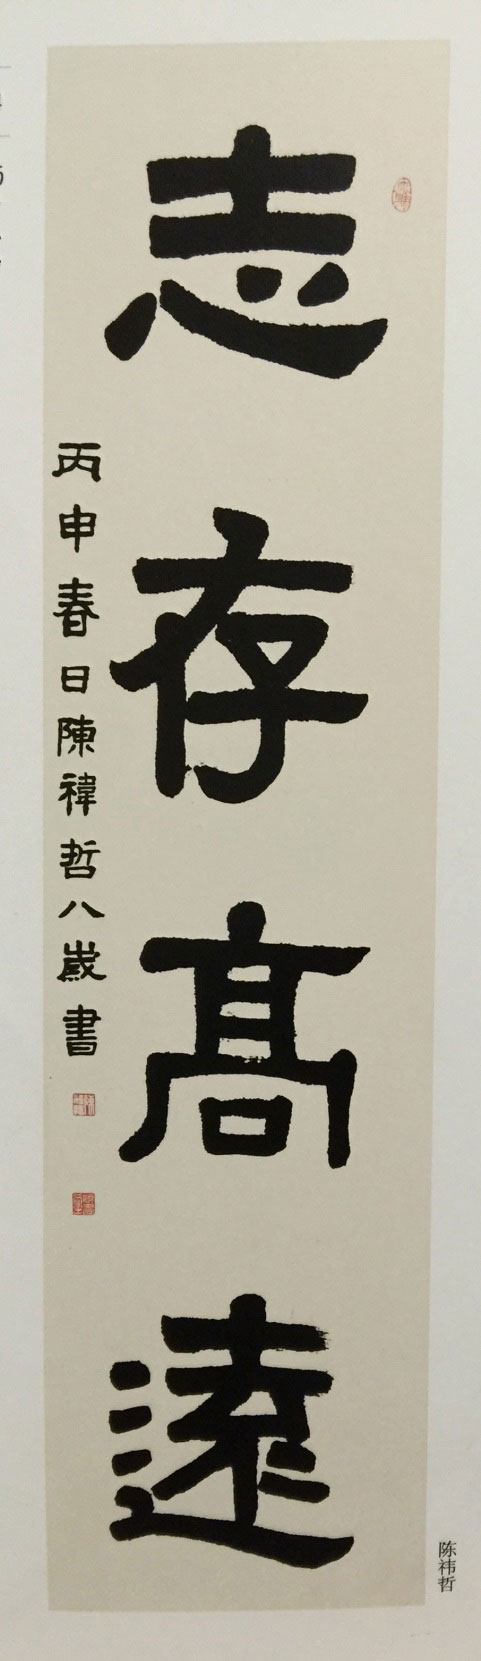 志存髙遠
丙申春日陳禕哲八歲書
陈祎哲